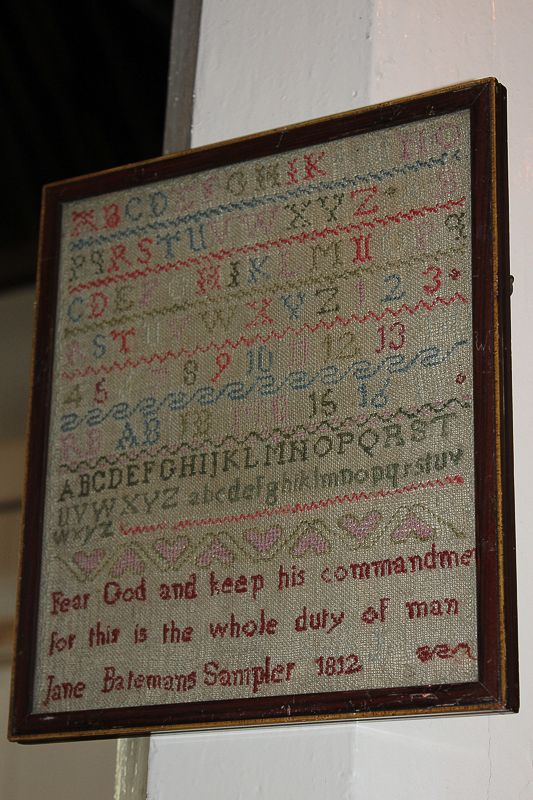 A B C D E F G H I K N O
P q R S T U V W X Y Z
C D E F H I K L M q
R S T V W X Y Z 1 2 3
4 5 8 9 10 11 12 13
RB AB 18 15 16
ABCDEFGHIJKLMNOPQRST
UVWXYZ abcdefghiklmnopqrstuv
wxyz
Fear God and keep his commandme
for this is the whole duty of man
Jane Batemans Sampler 1812